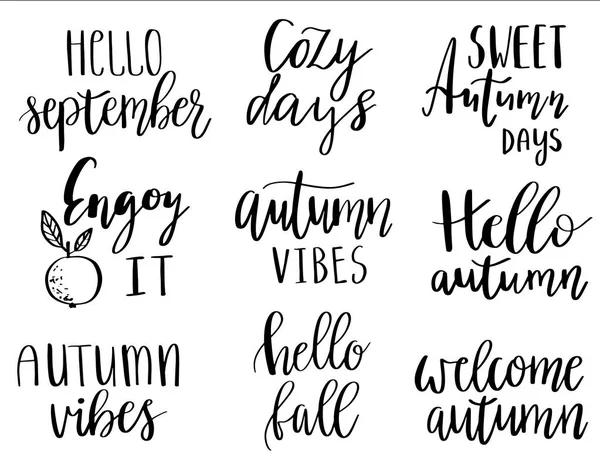 HELLO
september
Cozy
days
SWEET
Autumn
DAYS
Engoy
IT
autumn
VIBES
Hello
autumn
AUTUMN
vibes
hello
fall
welcome
autumn